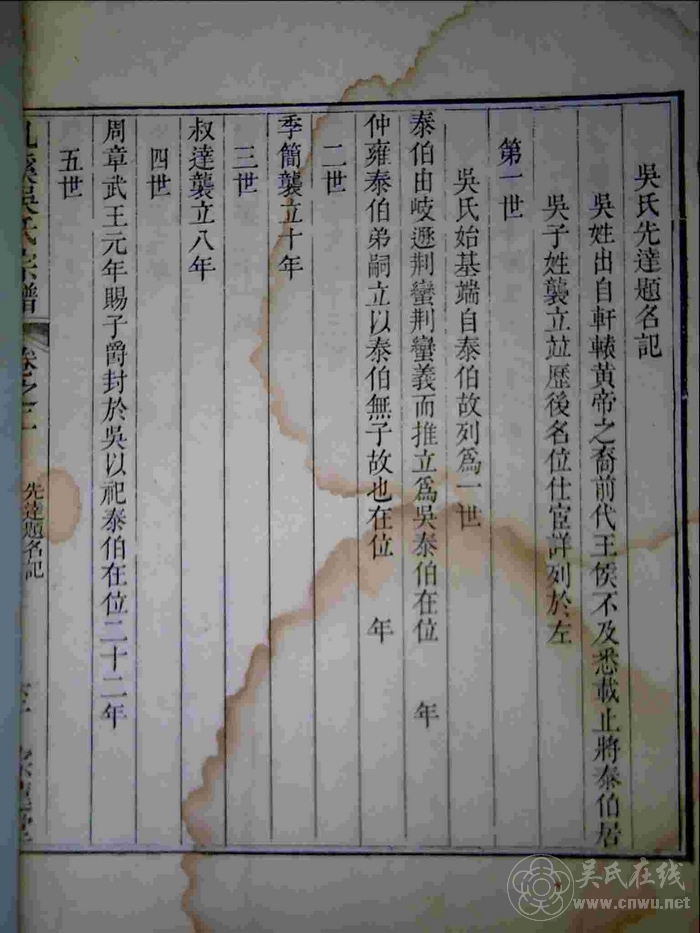 吳氏先達題名記
吳姓出自軒轅黃帝之裔前代王侯不及悉載止將泰伯居
吳子姓襲立並歷後名位仕宦詳列於左
第一世
吳氏始基端自泰伯故列爲一世
泰伯由岐遯荆蠻荆蠻義而推立爲吳泰伯在位　年
仲雍泰伯弟嗣立以泰伯無子故也在位　年
二世
季簡襲立十年
三世
叔達襲立八年
四世
周章武王元年賜子爵封於吳以祀泰伯在位二十二年
五世
溪吳氏宗譜
卷之二
先達題名記
吴氏在线
www.cnwu.net